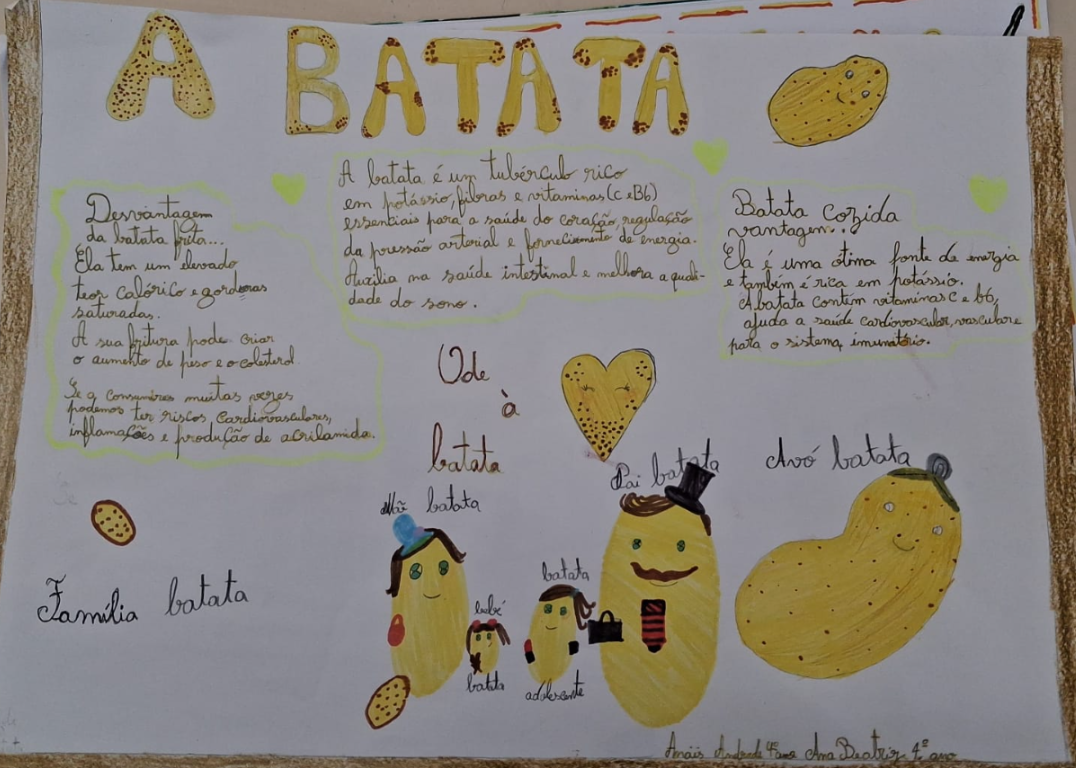 A BATATA
Desvantagem
da batata frita...
Ela tem um elevado
teor calórico e gorduras
saturadas.
A sua fritura pode criar
o aumento de peso e o colesterol.
Se a consumires muitas vezes
podemos ter riscos cardiovasculares,
inflamações e produção de acrilamida.
A batata é um tubérculo rico
em potássio, fibras e vitaminas (C e B6)
essenciais para a saúde do coração, regulação
da pressão arterial e fornecimento de energia.
Auxilia na saúde intestinal e melhora a quali-
dade do sono.
Batata Cozida
vantagem...
Ela é uma ótima fonte de energia
e também é rica em potássio.
A batata contém vitaminas C e b6,
ajuda a saúde cardiovascular, vascular e
para o sistema imunitário.
Ode
à
batata
Família batata
Mãe batata
bebé
batata
batata
adolescente
Pai batata
Avó batata
Anaís Andrade 4ºano Ana Beatriz 4º ano